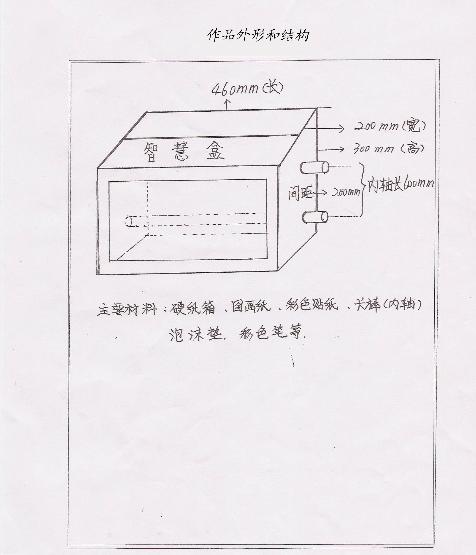 作品外形和结构
460mm(长)
200mm(宽)
智慧盒
300mm(高)
间距
200mm
内轴长600mm
主要材料：硬纸箱、国画纸、彩色贴纸、长棒(内轴)
泡沫垫、彩色笔等.